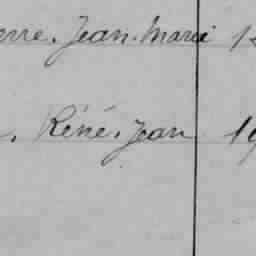 erre, Jean-Marie
René, Jean 19